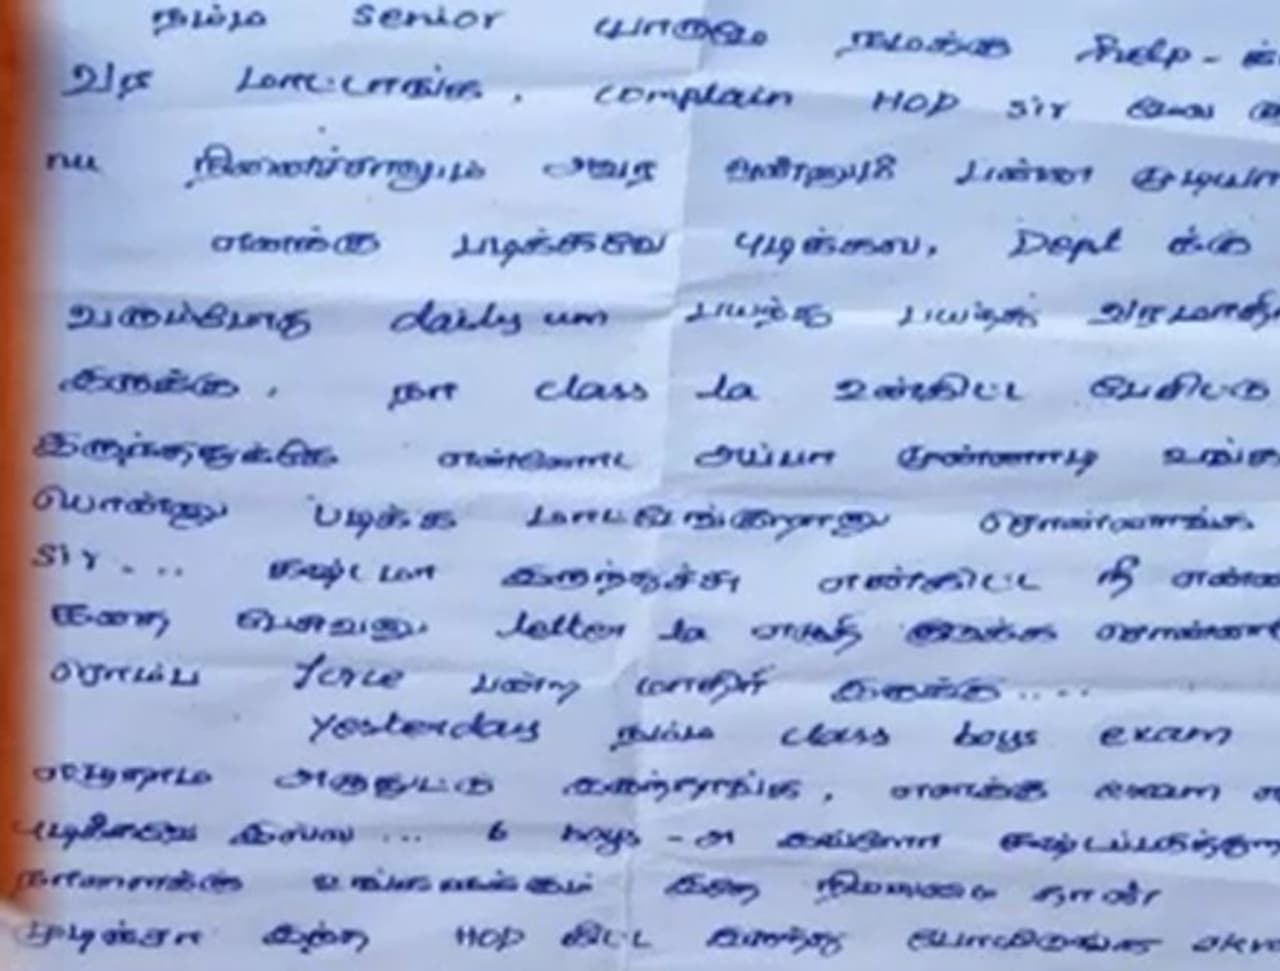 நம்ம senior யாரும் நமக்கு help-க்
வர மாட்டாங்க. complain HOD sir இல்ல
nu நினைச்சாலும் அவர ஒண்ணும் பண்ண முடியா
எனக்கு படிக்கவே புடிக்கல, Dept க்கு
வரும்போது daily um பயந்து பயந்து வரமாதி
இருக்கு. நா class la உன்கிட்ட பேசிட்டு
இருந்ததுக்கே என்னோட அப்பா முன்னாடி உங்க
பொண்ணு படிக்க மாட்டேங்குறானு சொன்னாங்க
sir.... கஷ்டமா இருந்துச்சு என்கிட்ட நீ என்ன
letter la எழுதி குடுக்க சொன்னா
ரொம்ப force பண்ற மாதிரி இருக்கு....
yesterday நம்ம class boys exam
எழுதாம அனுப்பிட்டு இருந்தாங்க, எனக்கு exam
புடிக்கவே இல்ல... 6 boys-அ எவ்ளோ கஷ்டப்படுத்து
நாளைக்கு உங்களுக்கும் இதே நிலைமை தான்
முடிஞ்சா இந்த HOD கிட்ட இருந்து போயிடுங்க